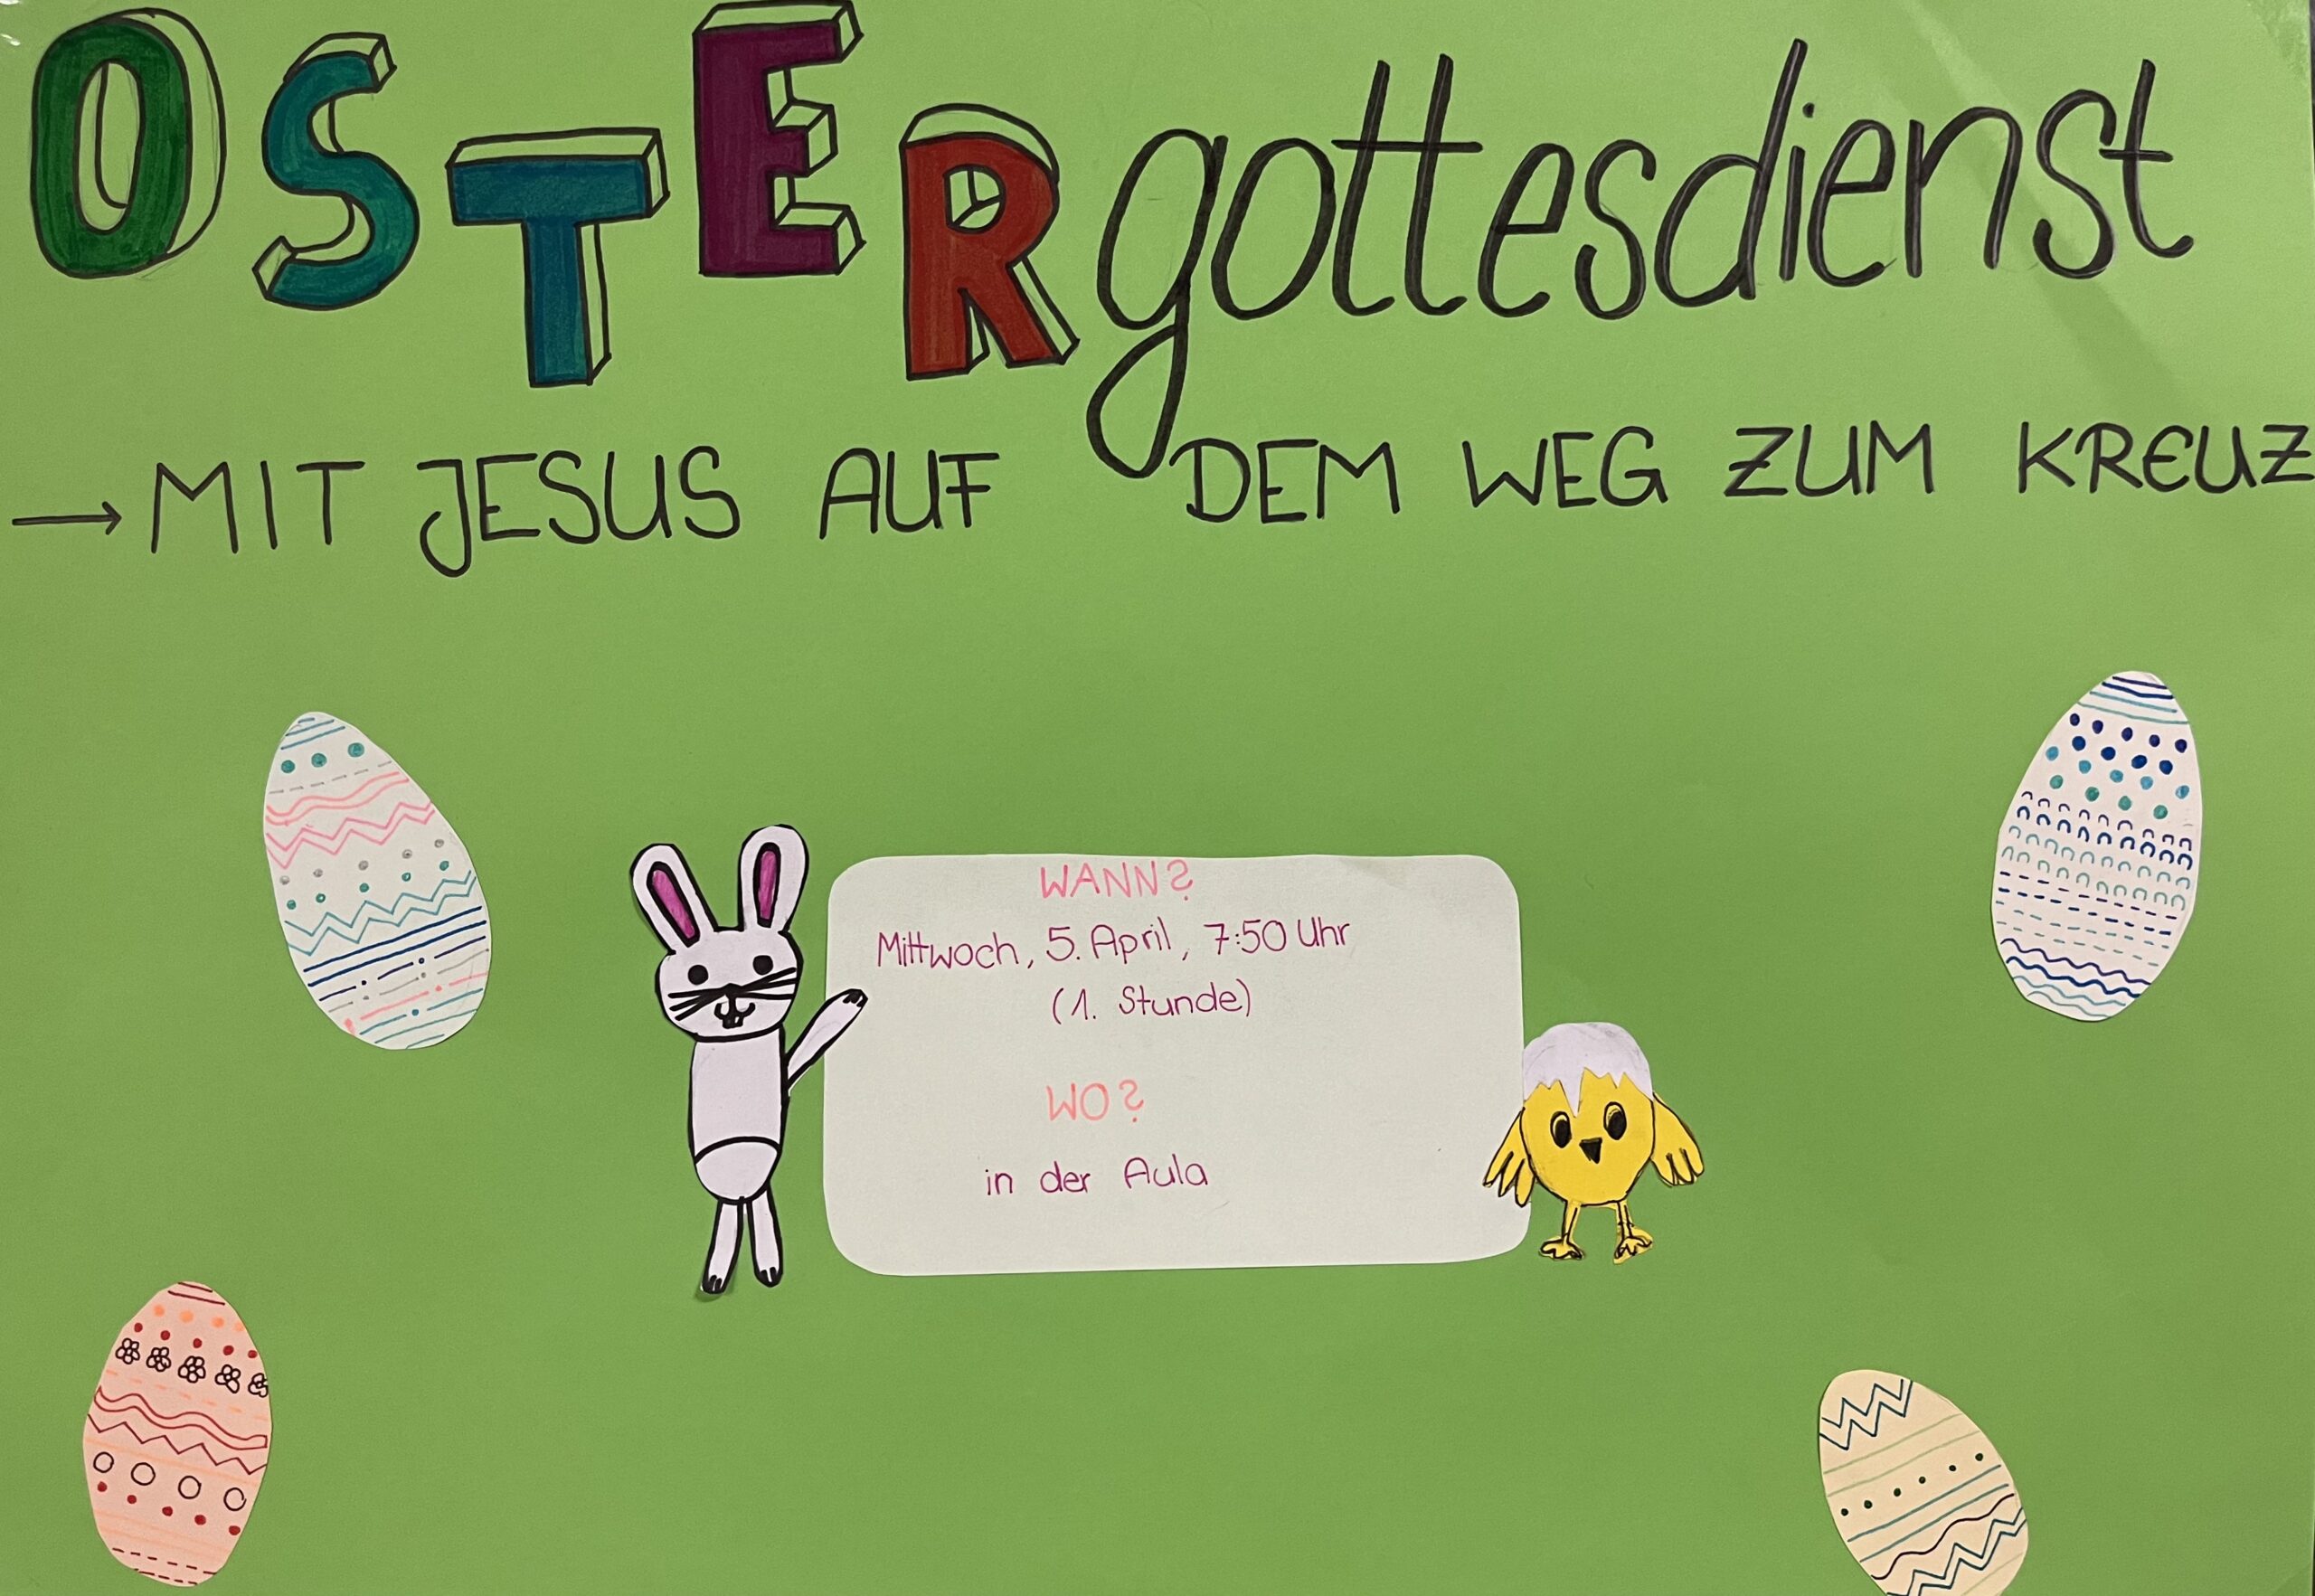 OSTERgottesdienst
→ MIT JESUS AUF DEM WEG ZUM KREUZ
WANN?
Mittwoch, 5. April, 7:50 Uhr
(1. Stunde)
WO?
in der Aula